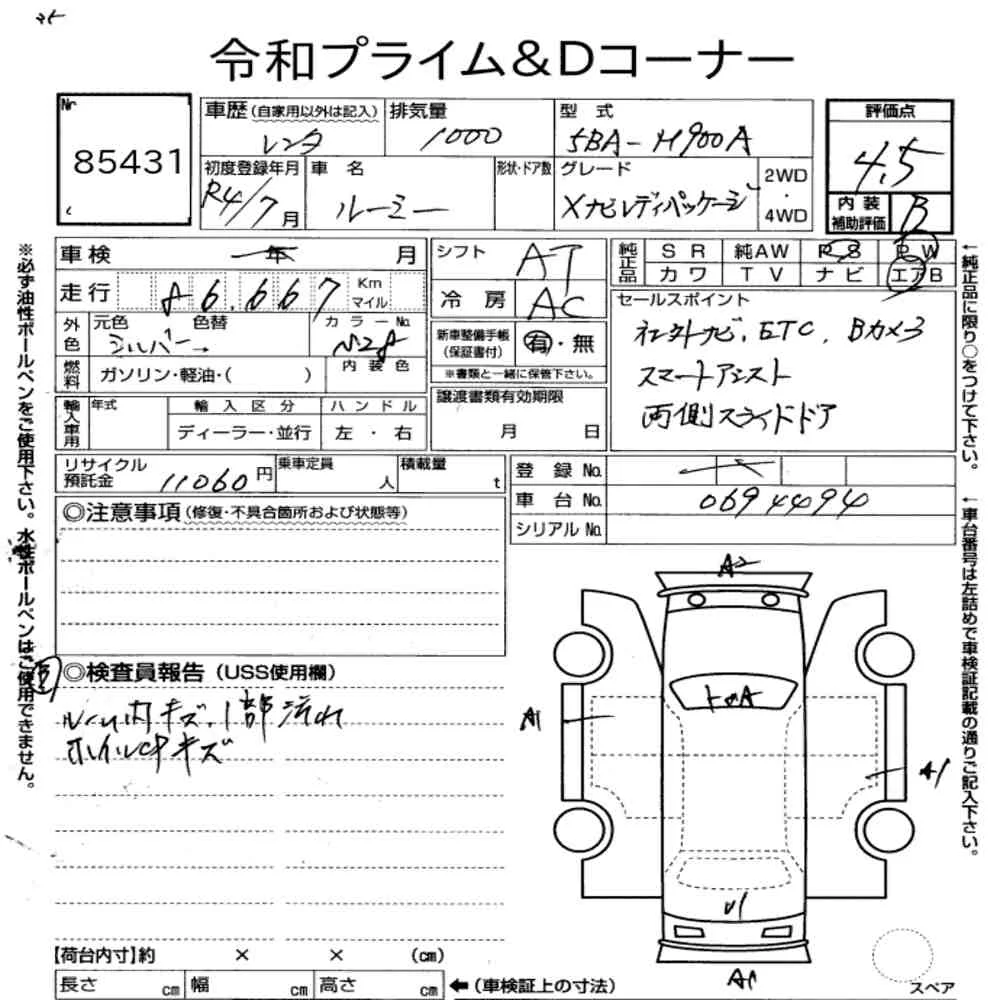 令和プライム&Dコーナー
Nr
85431
車歴(自家用以外は記入)
レンタ
排気量
1000
型式
5BA-M900A
評価点
4.5
内装補助評価
B
初度登録年月
R4/7月
車名
ルーミー
形状・ドア数
グレード
Xナビレディパッケージ
2WD
・
4WD
車検 年 月
走行 86,667 Km マイル
外色
元色 色替
シルバー
カラーNo.
N28
燃料
ガソリン・軽油・( )
内装色
シフト
AT
冷房
AC
新車整備手帳(保証書付)
有・無
※書類と一緒に保管下さい。
譲渡書類有効期限
月 日
純正品
SR 純AW PS PW
カワ TV ナビ エアB
セールスポイント
社外ナビ、ETC、Bカメラ
スマートアシスト
両側スライドドア
輸入車用
年式
輸入区分
ディーラー・並行
ハンドル
左・右
リサイクル預託金
11060円
乗車定員
人
積載量
t
登録No.
車台No.
0694494
シリアルNo.
◎注意事項(修復・不具合箇所および状態等)
◎検査員報告(USS使用欄)
ルーム内キズ、1部汚れ
ホイルCPキズ
A2
トwA
A1
A1
U1
A1
スペア
【荷台内寸】約 × × (cm)
長さ cm 幅 cm 高さ cm ←(車検証上の寸法)
※必ず油性ボールペンをご使用下さい。水性ボールペンはご使用できません。
←純正品に限り○をつけて下さい。
←車台番号は左詰めで車検証記載の通りご記入下さい。